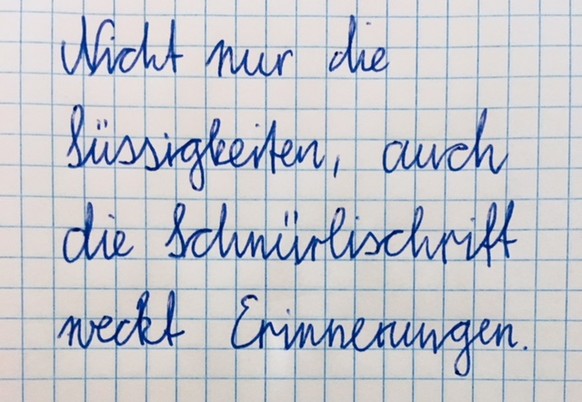 Nicht nur die
Süssigkeiten, auch
die Schnürlischrift
weckt Erinnerungen.